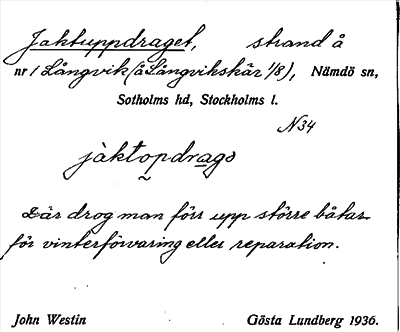 Jaktuppdraget, strand å
nr 1 Långvik (å Långvikskär 1/8), Nämdö sn,
Sotholms hd, Stockholms l.
N34
jàktopdrags
Där drog man förr upp större båtar
för vinterförvaring eller reparation.
John Westin Gösta Lundberg 1936.